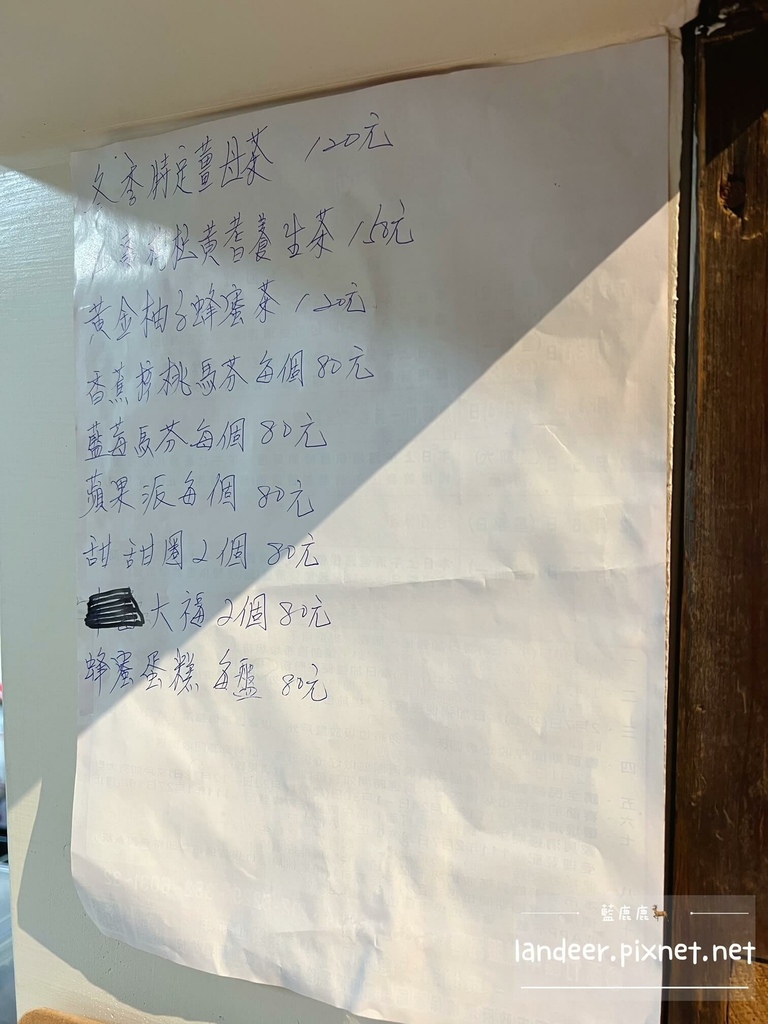 冬季特定薑母茶 120元
黃耆養生茶 150元
黃金柚子蜂蜜茶 120元
香蕉核桃馬芬每個80元
藍莓馬芬每個 80元
蘋果派每個 80元
甜甜圈2個 80元
大福2個80元
蜂蜜蛋糕 每盤 80元
藍鹿鹿
landeer.pixnet.net